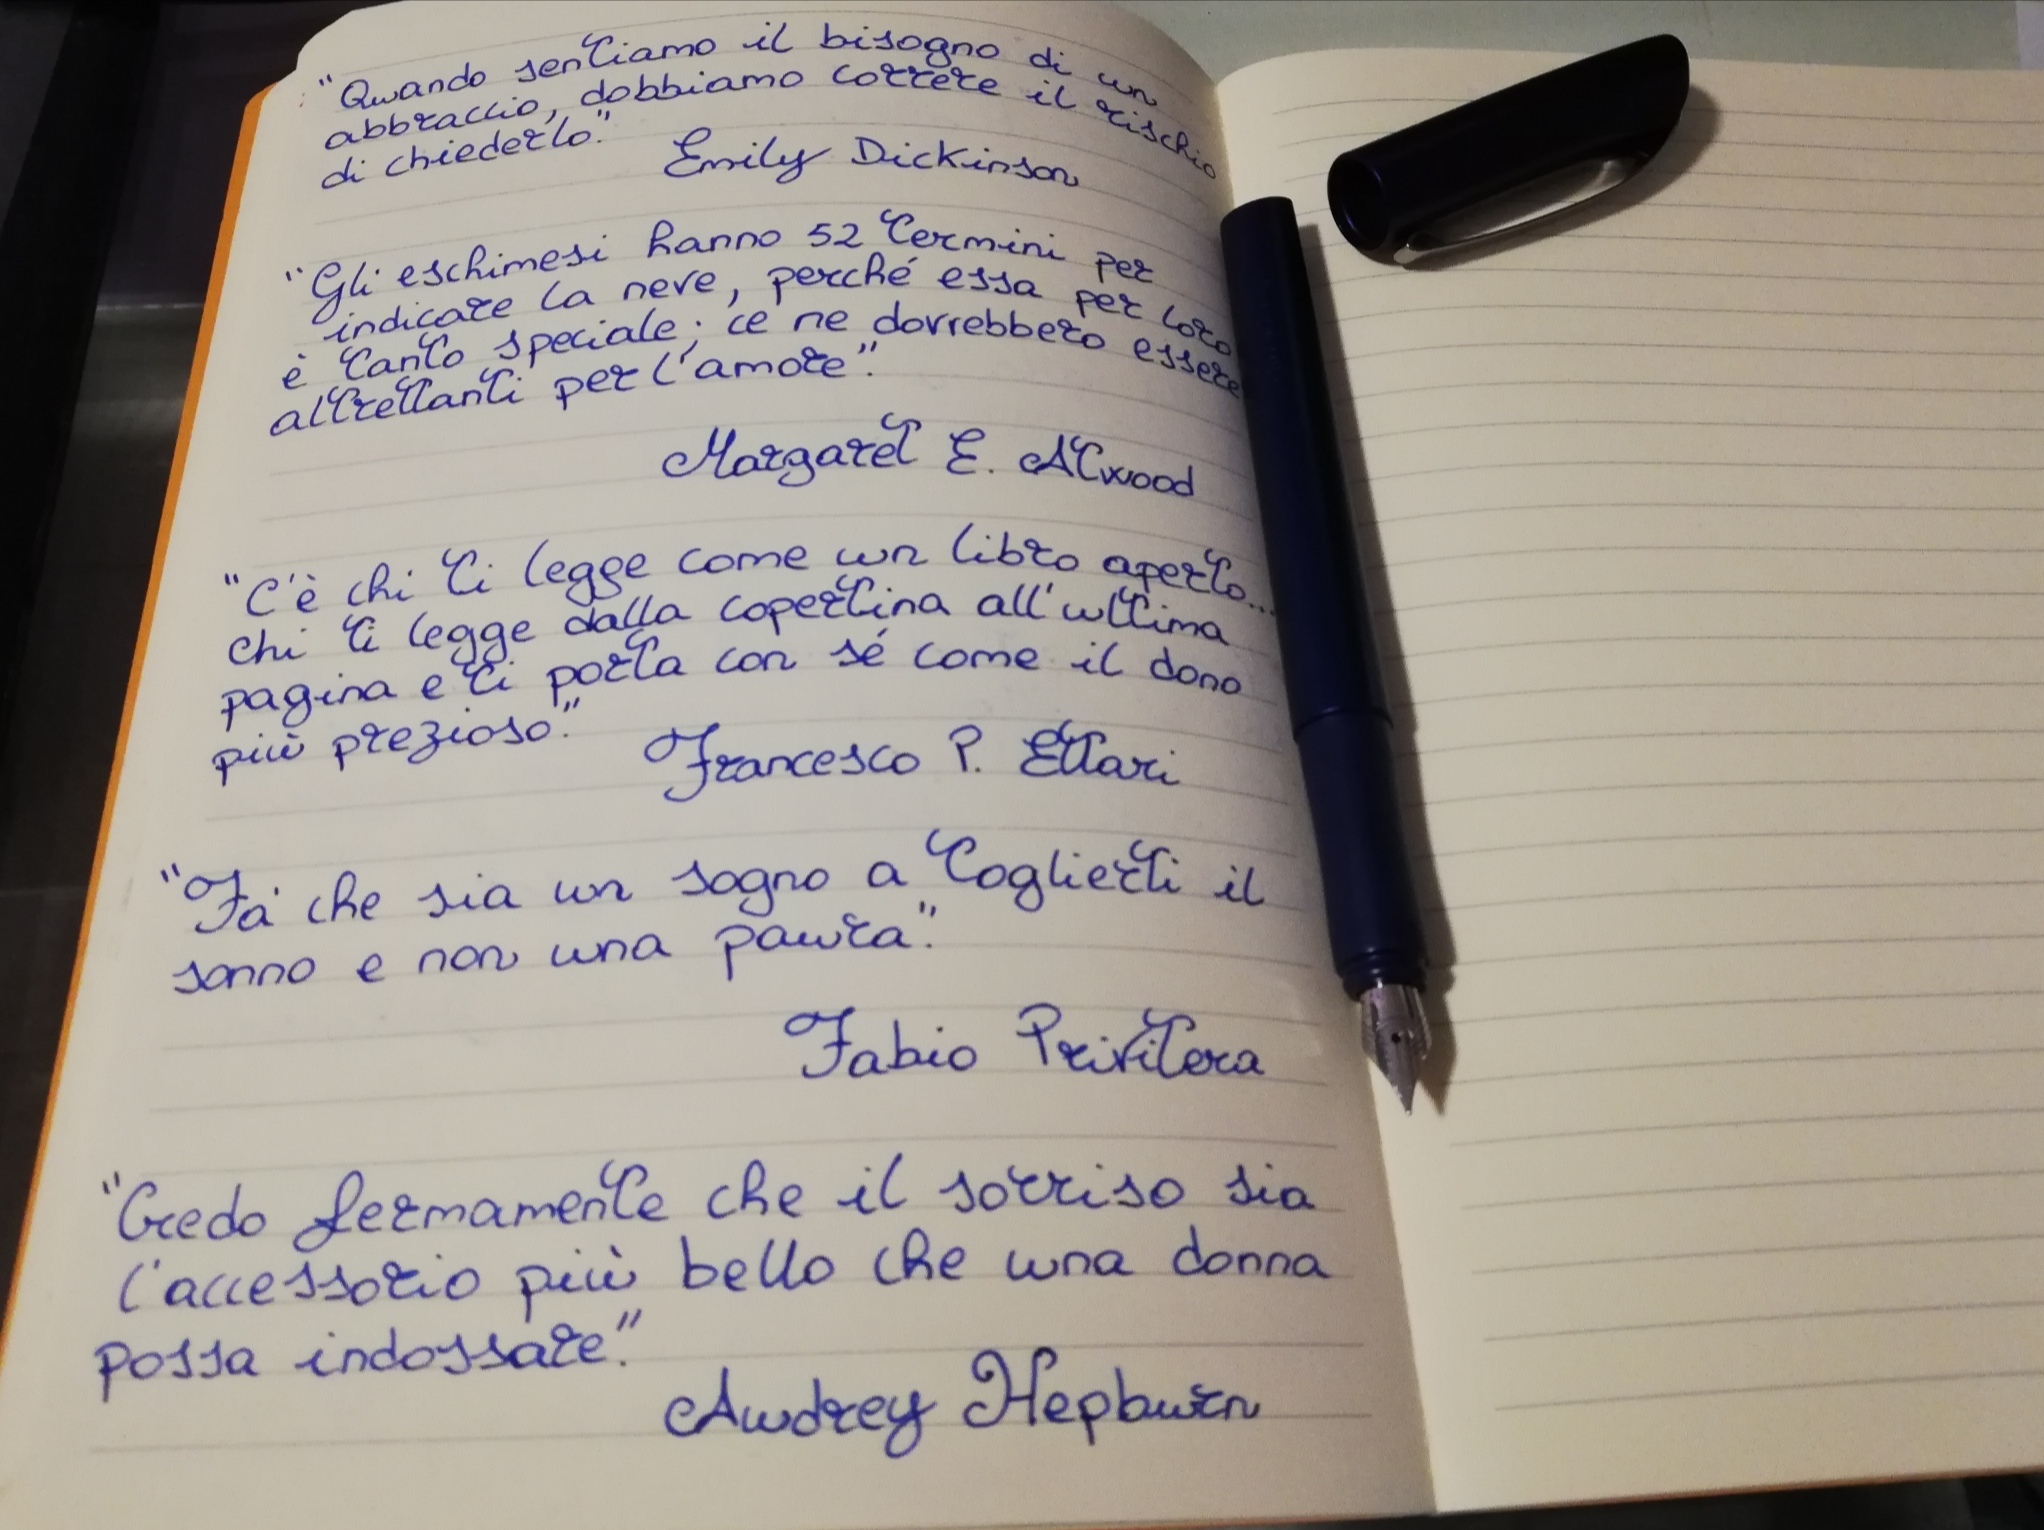 "Quando sentiamo il bisogno di un
abbraccio, dobbiamo correre il rischio
di chiederlo."
Emily Dickinson
"Gli eschimesi hanno 52 termini per
indicare la neve, perché essa per loro
è tanto speciale; ce ne dovrebbero essere
altrettanti per l'amore".
Margaret E. Atwood
"C'è chi ti legge come un libro aperto...
chi ti legge dalla copertina all'ultima
pagina e ti porta con sé come il dono
più prezioso."
Francesco P. Ettari
"Fa' che sia un sogno a toglierti il
sonno e non una paura".
Fabio Privitera
"Credo fermamente che il sorriso sia
l'accessorio più bello che una donna
possa indossare."
Audrey Hepburn